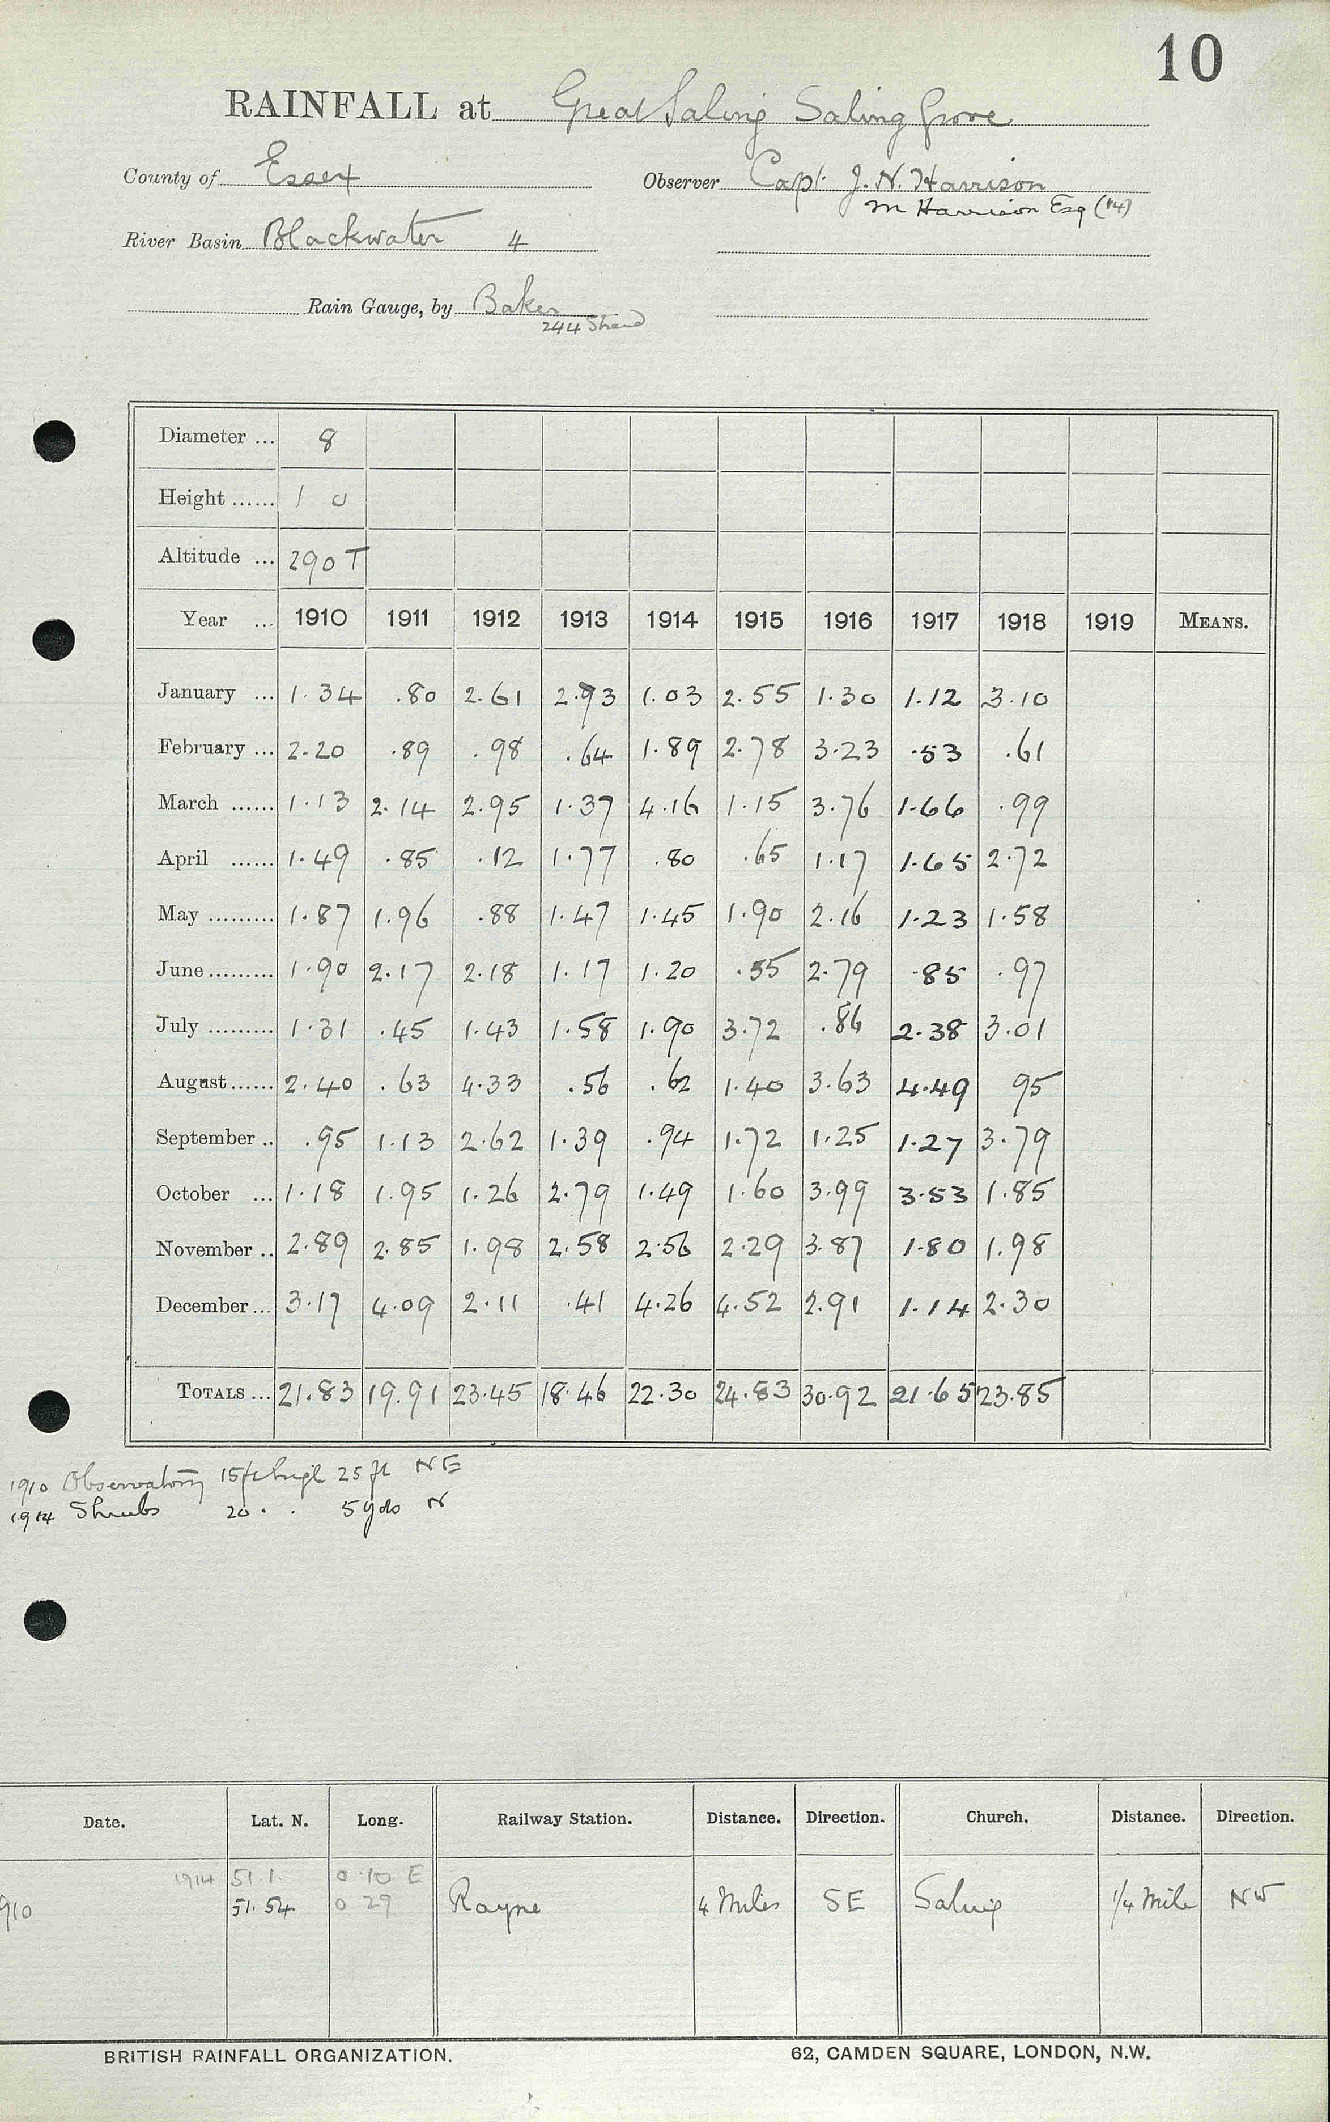 10
RAINFALL at Great Saling Saling Grove
County of Essex Observer Capt. J. N. Harrison
M Harrison Esq (14)
River Basin Blackwater 4
Rain Gauge, by Baker
244 Strand
Diameter ... 8
Height ...... 1 0
Altitude ... 290 T
Year ... 1910 1911 1912 1913 1914 1915 1916 1917 1918 1919 MEANS.
January ... 1.34 .80 2.61 2.93 1.03 2.55 1.30 1.12 3.10
February ... 2.20 .89 .98 .64 1.89 2.78 3.23 .53 .61
March ...... 1.13 2.14 2.95 1.37 4.16 1.15 3.76 1.66 .99
April ...... 1.49 .85 .12 1.77 .80 .65 1.17 1.65 2.72
May ......... 1.87 1.96 .88 1.47 1.45 1.90 2.16 1.23 1.58
June ......... 1.90 2.17 2.18 1.17 1.20 .55 2.79 .85 .97
July ......... 1.31 .45 1.43 1.58 1.90 3.72 .86 2.38 3.01
August ...... 2.40 .63 4.33 .56 .62 1.40 3.63 4.49 95
September .. .95 1.13 2.62 1.39 .94 1.72 1.25 1.27 3.79
October ... 1.18 1.95 1.26 2.79 1.49 1.60 3.99 3.53 1.85
November .. 2.89 2.85 1.98 2.58 2.56 2.29 3.87 1.80 1.98
December ... 3.17 4.09 2.11 .41 4.26 4.52 2.91 1.14 2.30
TOTALS ... 21.83 19.91 23.45 18.46 22.30 24.83 30.92 21.65 23.85
1910 Observatory 15ft high 25 ft NE
1914 Shrubs 20 . . 5 yds N
Date. Lat. N. Long. Railway Station. Distance. Direction. Church. Distance. Direction.
1914 51.1. 0 10 E
910 51.54 0 29 Rayne 4 Miles SE Saling 1/4 Mile NW
BRITISH RAINFALL ORGANIZATION. 62, CAMDEN SQUARE, LONDON, N.W.